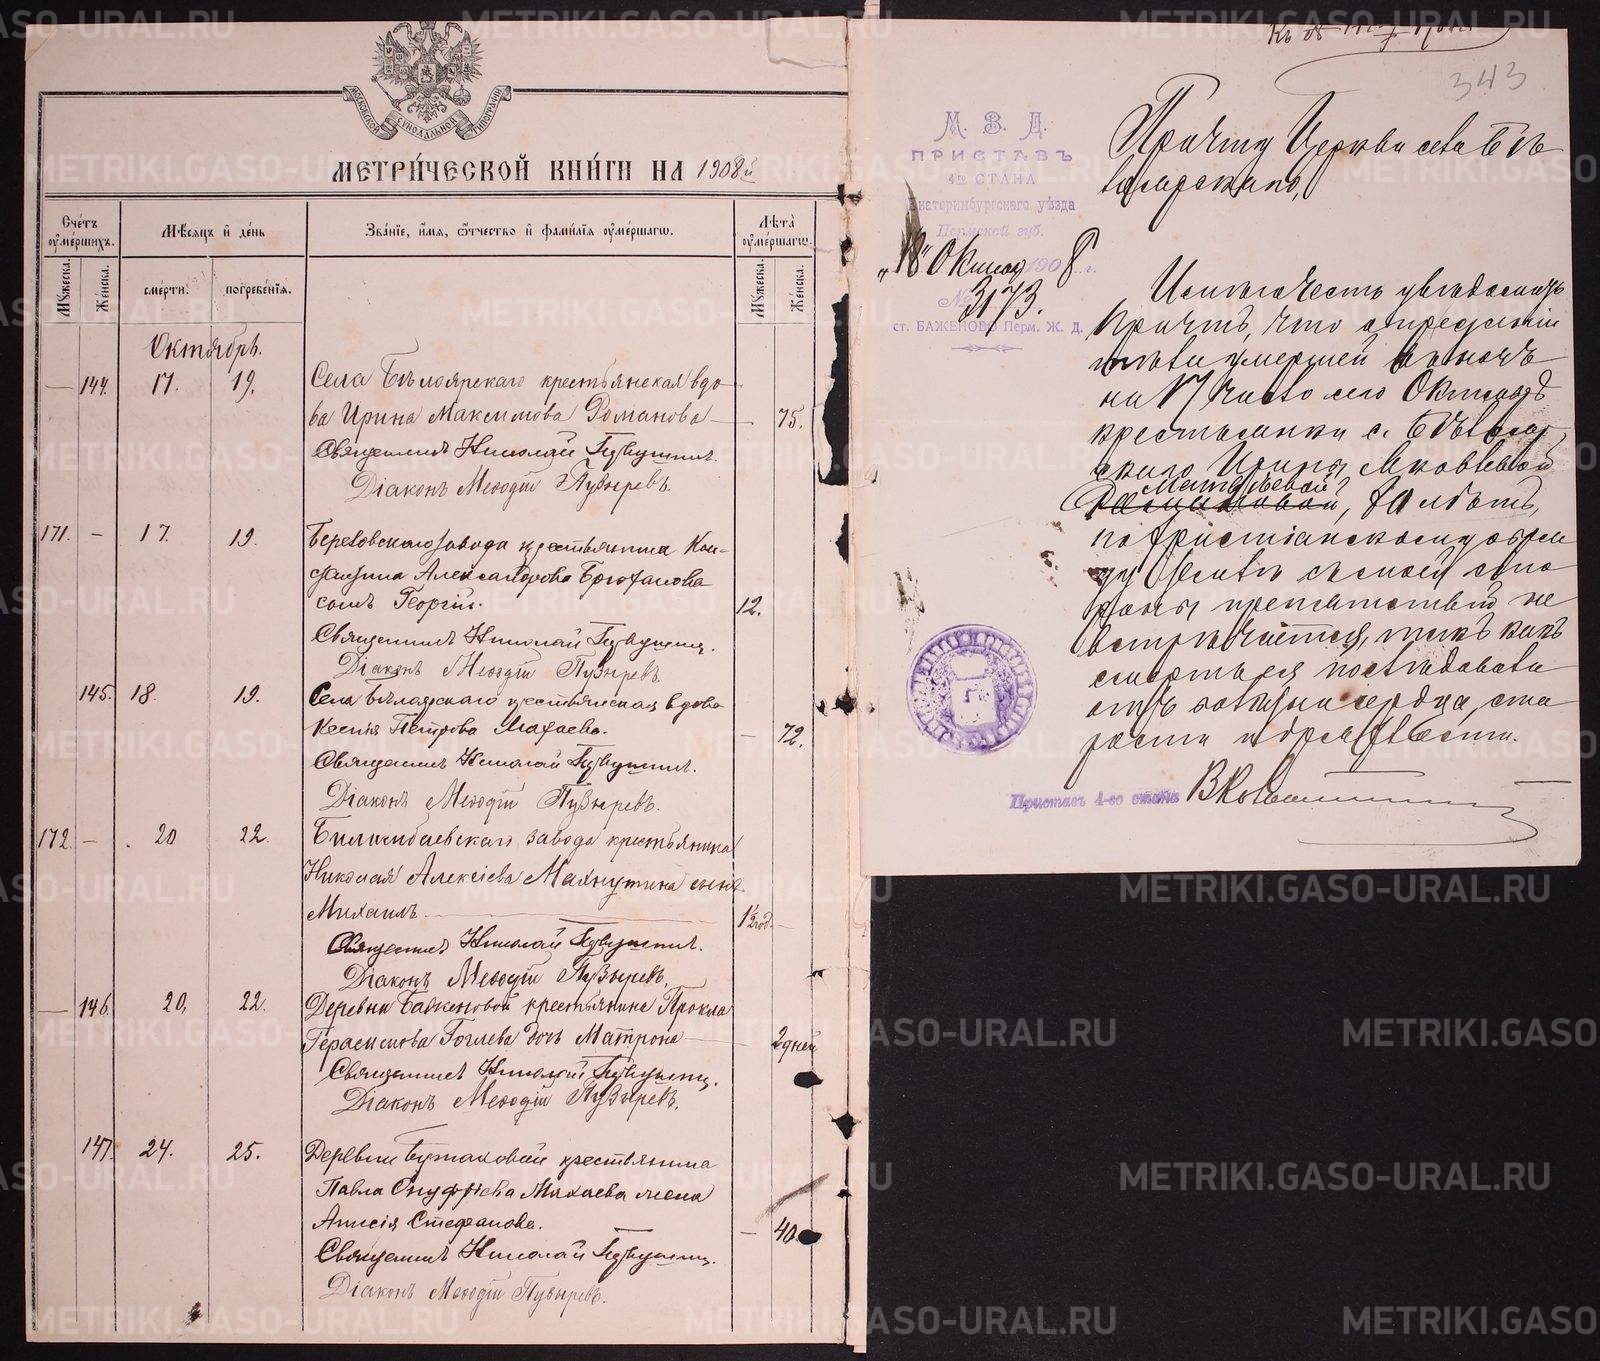 МОСКОВСКОЙ СѴНОДАЛЬНОЙ ТИПОГРАФІИ
МЕТРИ́ЧЕСКОЙ КНИ́ГИ НА 1908й
Счётъ оумершихъ.
Мѣсяцъ и день
Зва́ніе, и́мя, ѻтчество и фами́лія оуме́ршагѡ.
Лѣта̀ оуме́ршагѡ.
Мꙋжеска.
Же́нска.
сме́рти.
погребе́нія.
Мꙋжеска.
Же́нска.
Октябрь.
— 144. 17. 19. Села Бѣлоярскаго крестьянская вдо-
ва Ирина Максимова Романова — — 75.
Священникъ Николай
Діаконъ Меѳодій Пузыревъ.
171. — 17. 19. Березовскаго завода крестьянина Кон-
стантина Александрова
сынъ Георгій. 12.
Священникъ Николай
Діаконъ Меѳодій Пузыревъ.
145. 18. 19. Села Бѣлоярскаго крестьянская вдова
Ксенія Петрова Махаева. — 72.
Священникъ Николай
Діаконъ Меѳодій Пузыревъ.
172. — 20 22. Билимбаевскаго завода крестьянина
Николая Алексіева Махнутина сынъ
Михаилъ. 1½ год. —
Священникъ Николай
Діаконъ Меѳодій Пузыревъ.
— 146. 20, 22. Деревни Баженовой крестьянина Прокла
Герасимова Гоглева дочь Матрона — 2 дней
Священникъ Николай
Діаконъ Меѳодій Пузыревъ.
147. 24. 25. Деревни крестьянина
Павла Онуфріева Махаева жена
Анисія Стефанова. — 40.
Священникъ Николай
Діаконъ Меѳодій Пузыревъ.
343
М. В. Д.
ПРИСТАВЪ
4го СТАНА
Екатеринбургскаго уѣзда
Пермской губ.
„18" Октября 1908 г.
№ 3173.
ст. БАЖЕНОВО Перм. Ж. Д.
Причту Церкви села Бѣ-
лоярскаго,
увѣдомить
Причтъ, что къ преданію
землѣ умершей въ ночь
на 17 число сего Октября
крестьянки с. Бѣлояр-
скаго Ирины Яковлевой
Матвѣевой
Романовой, 80 лѣтъ,
по христіанскому обря-
ду съ моей сто-
роны препятствій не
встрѣчается, такъ какъ
смерть ея послѣдовала
отъ болѣзни сердца, ста-
рости и дряхлости.
Приставъ 4-го стана